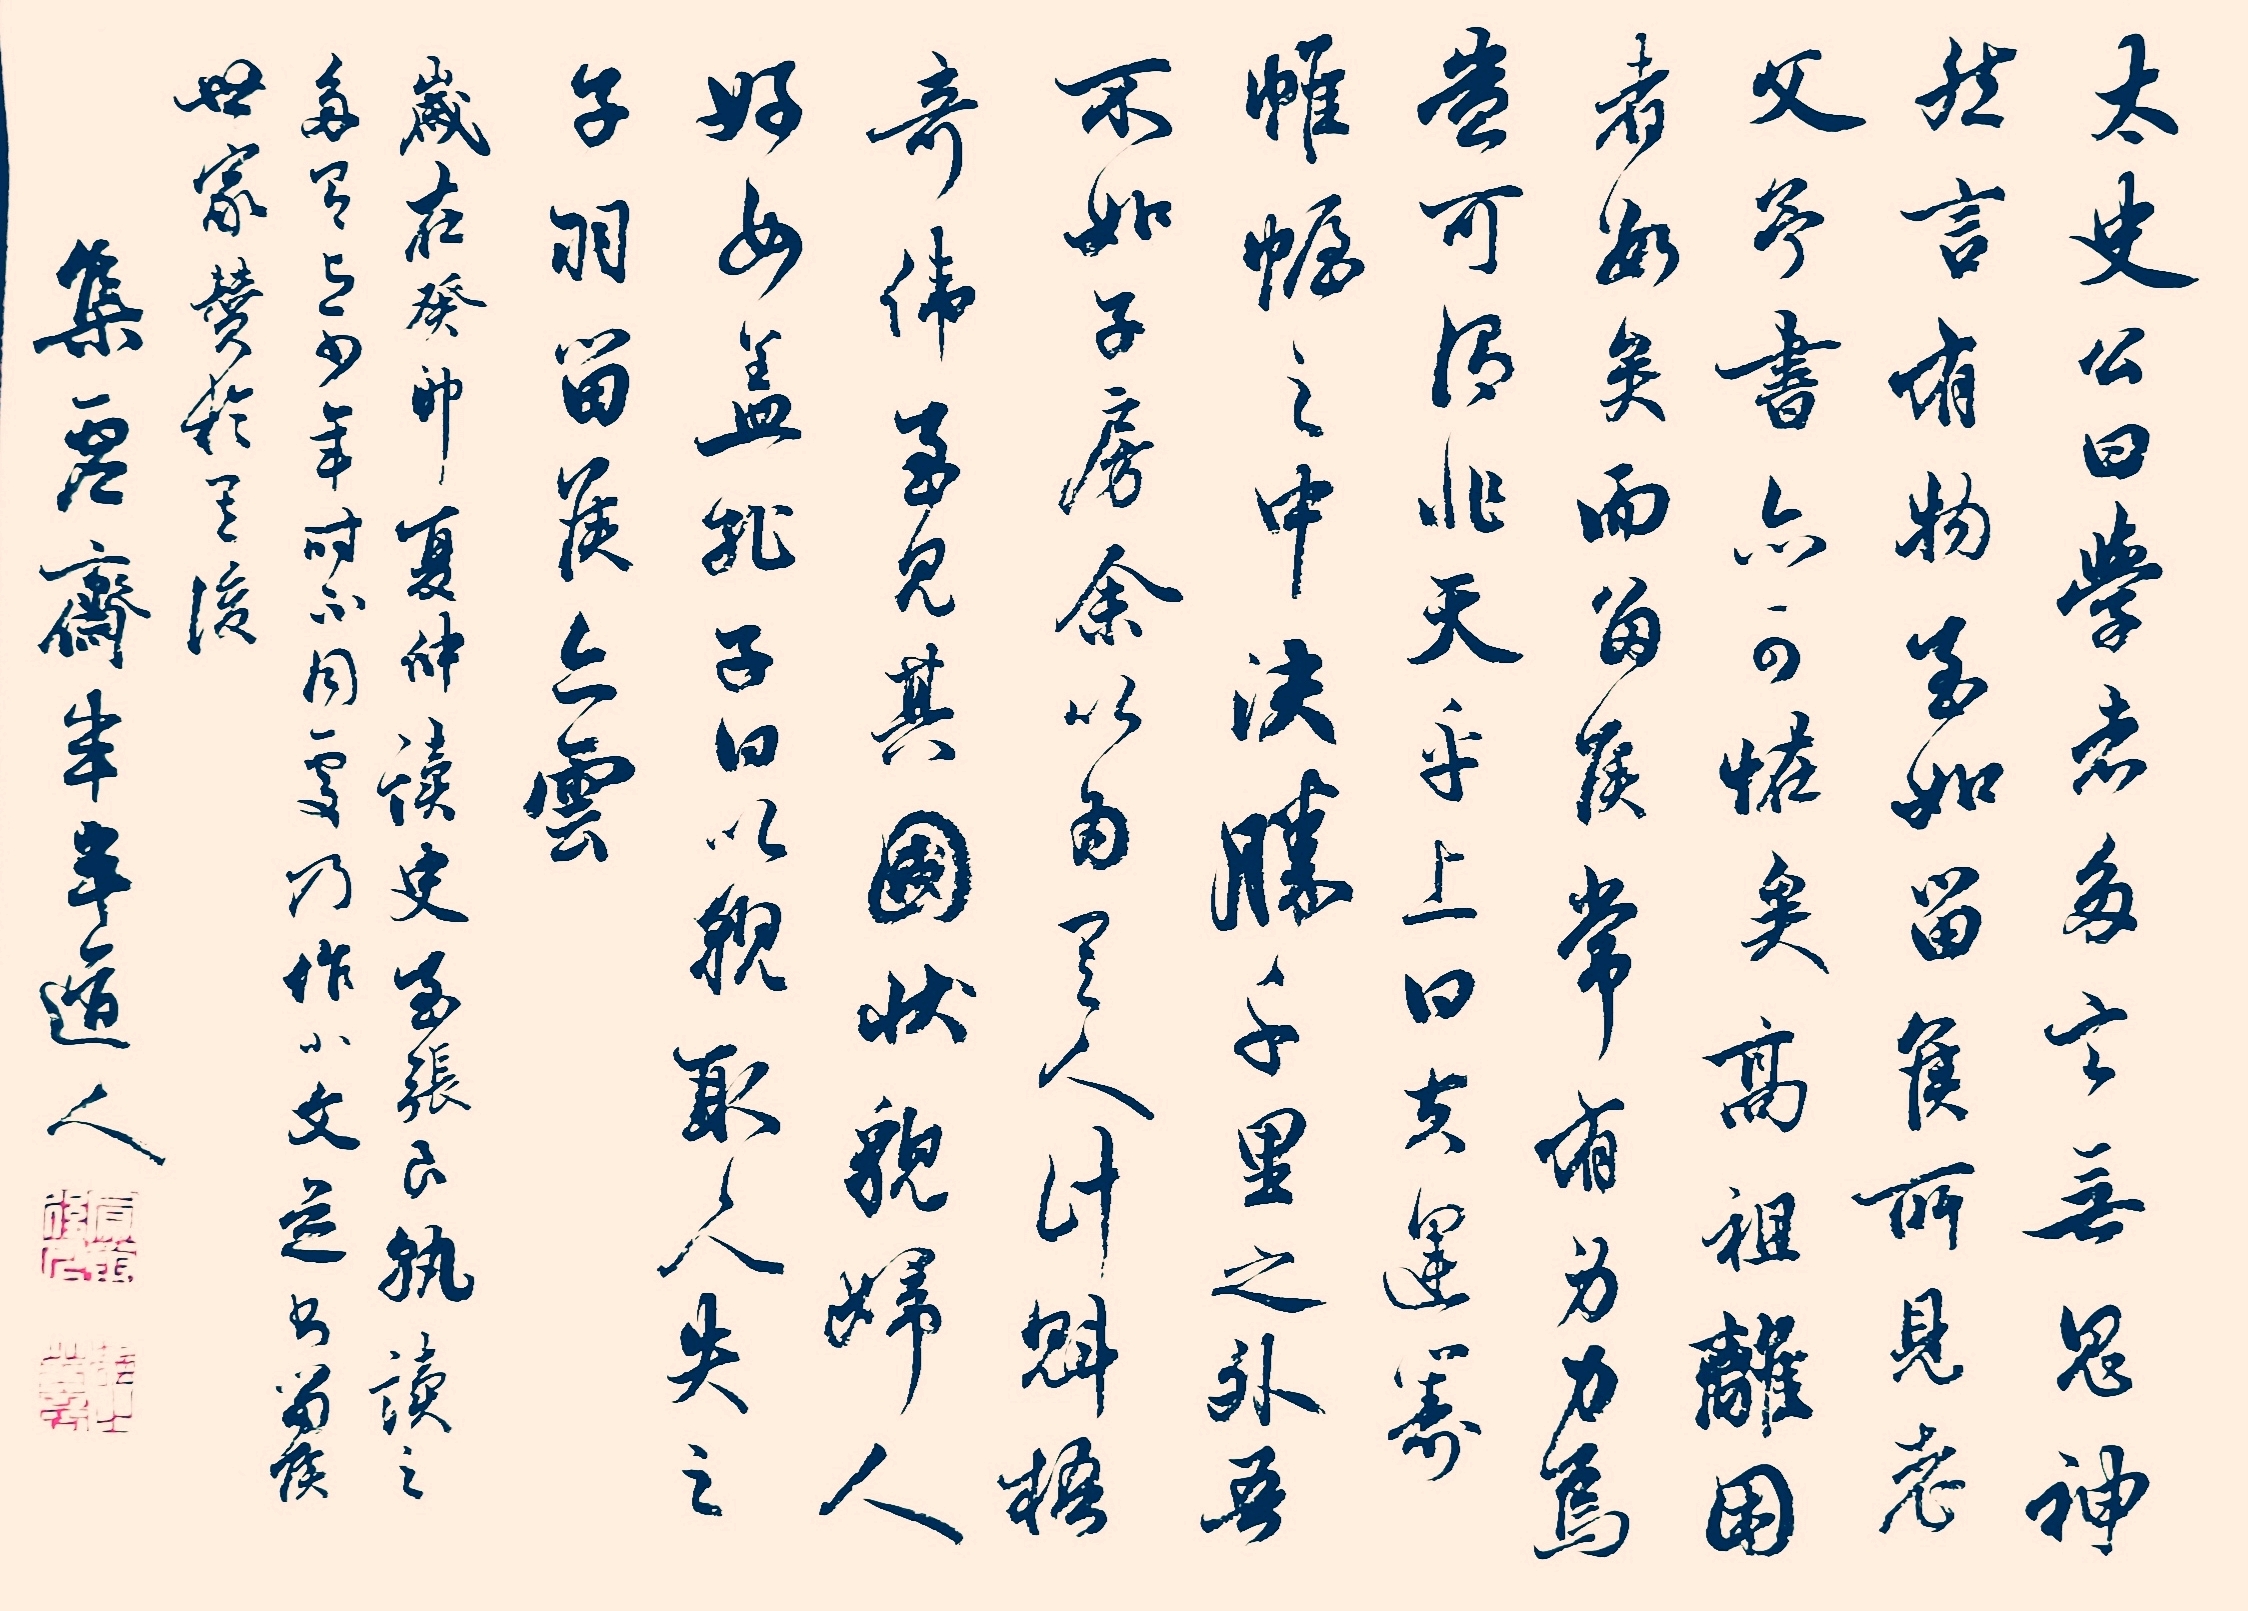 太史公曰學者多言無鬼神
然言有物至如留侯所見老
父予書亦可怪矣高祖離困
者數矣而留侯常有功力焉
豈可謂非天乎上曰夫運籌
帷幄之中決勝千里之外吾
不如子房余以為其人計魁梧
奇偉至見其圖狀貌婦人
好女蓋孔子曰以貌取人失之
子羽留侯亦雲
歲在癸卯夏仲讀史至張良孰讀之
多有与少年時不同處乃作小文並書留侯
世家贊於其後
集虛齋半半道人